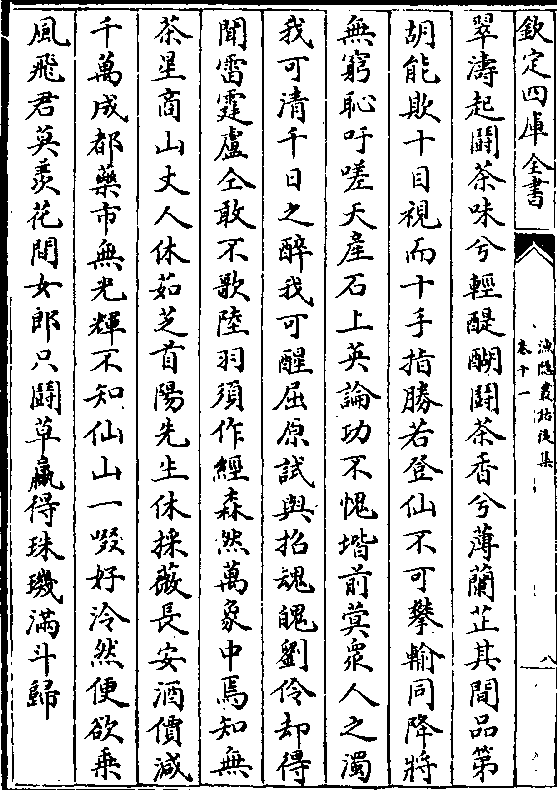 欽定四庫全書
漁隱叢話後集
卷十一
八
翠濤起鬭茶味兮輕醍醐鬭茶香兮薄蘭芷其間品第
胡能欺十目視而十手指勝若登仙不可攀輸同降將
無窮恥吁嗟天產石上英論功不愧堦前蓂衆人之濁
我可清千日之醉我可醒屈原試與招魂魄劉伶却得
聞雷霆盧仝敢不歌陸羽須作經森然萬象中焉知無
茶星商山丈人休茹芝首陽先生休採薇長安酒價減
千萬成都藥市無光輝不知仙山一啜好泠然便欲乗
風飛君莫羨花間女郎只鬭草贏得珠璣滿斗歸